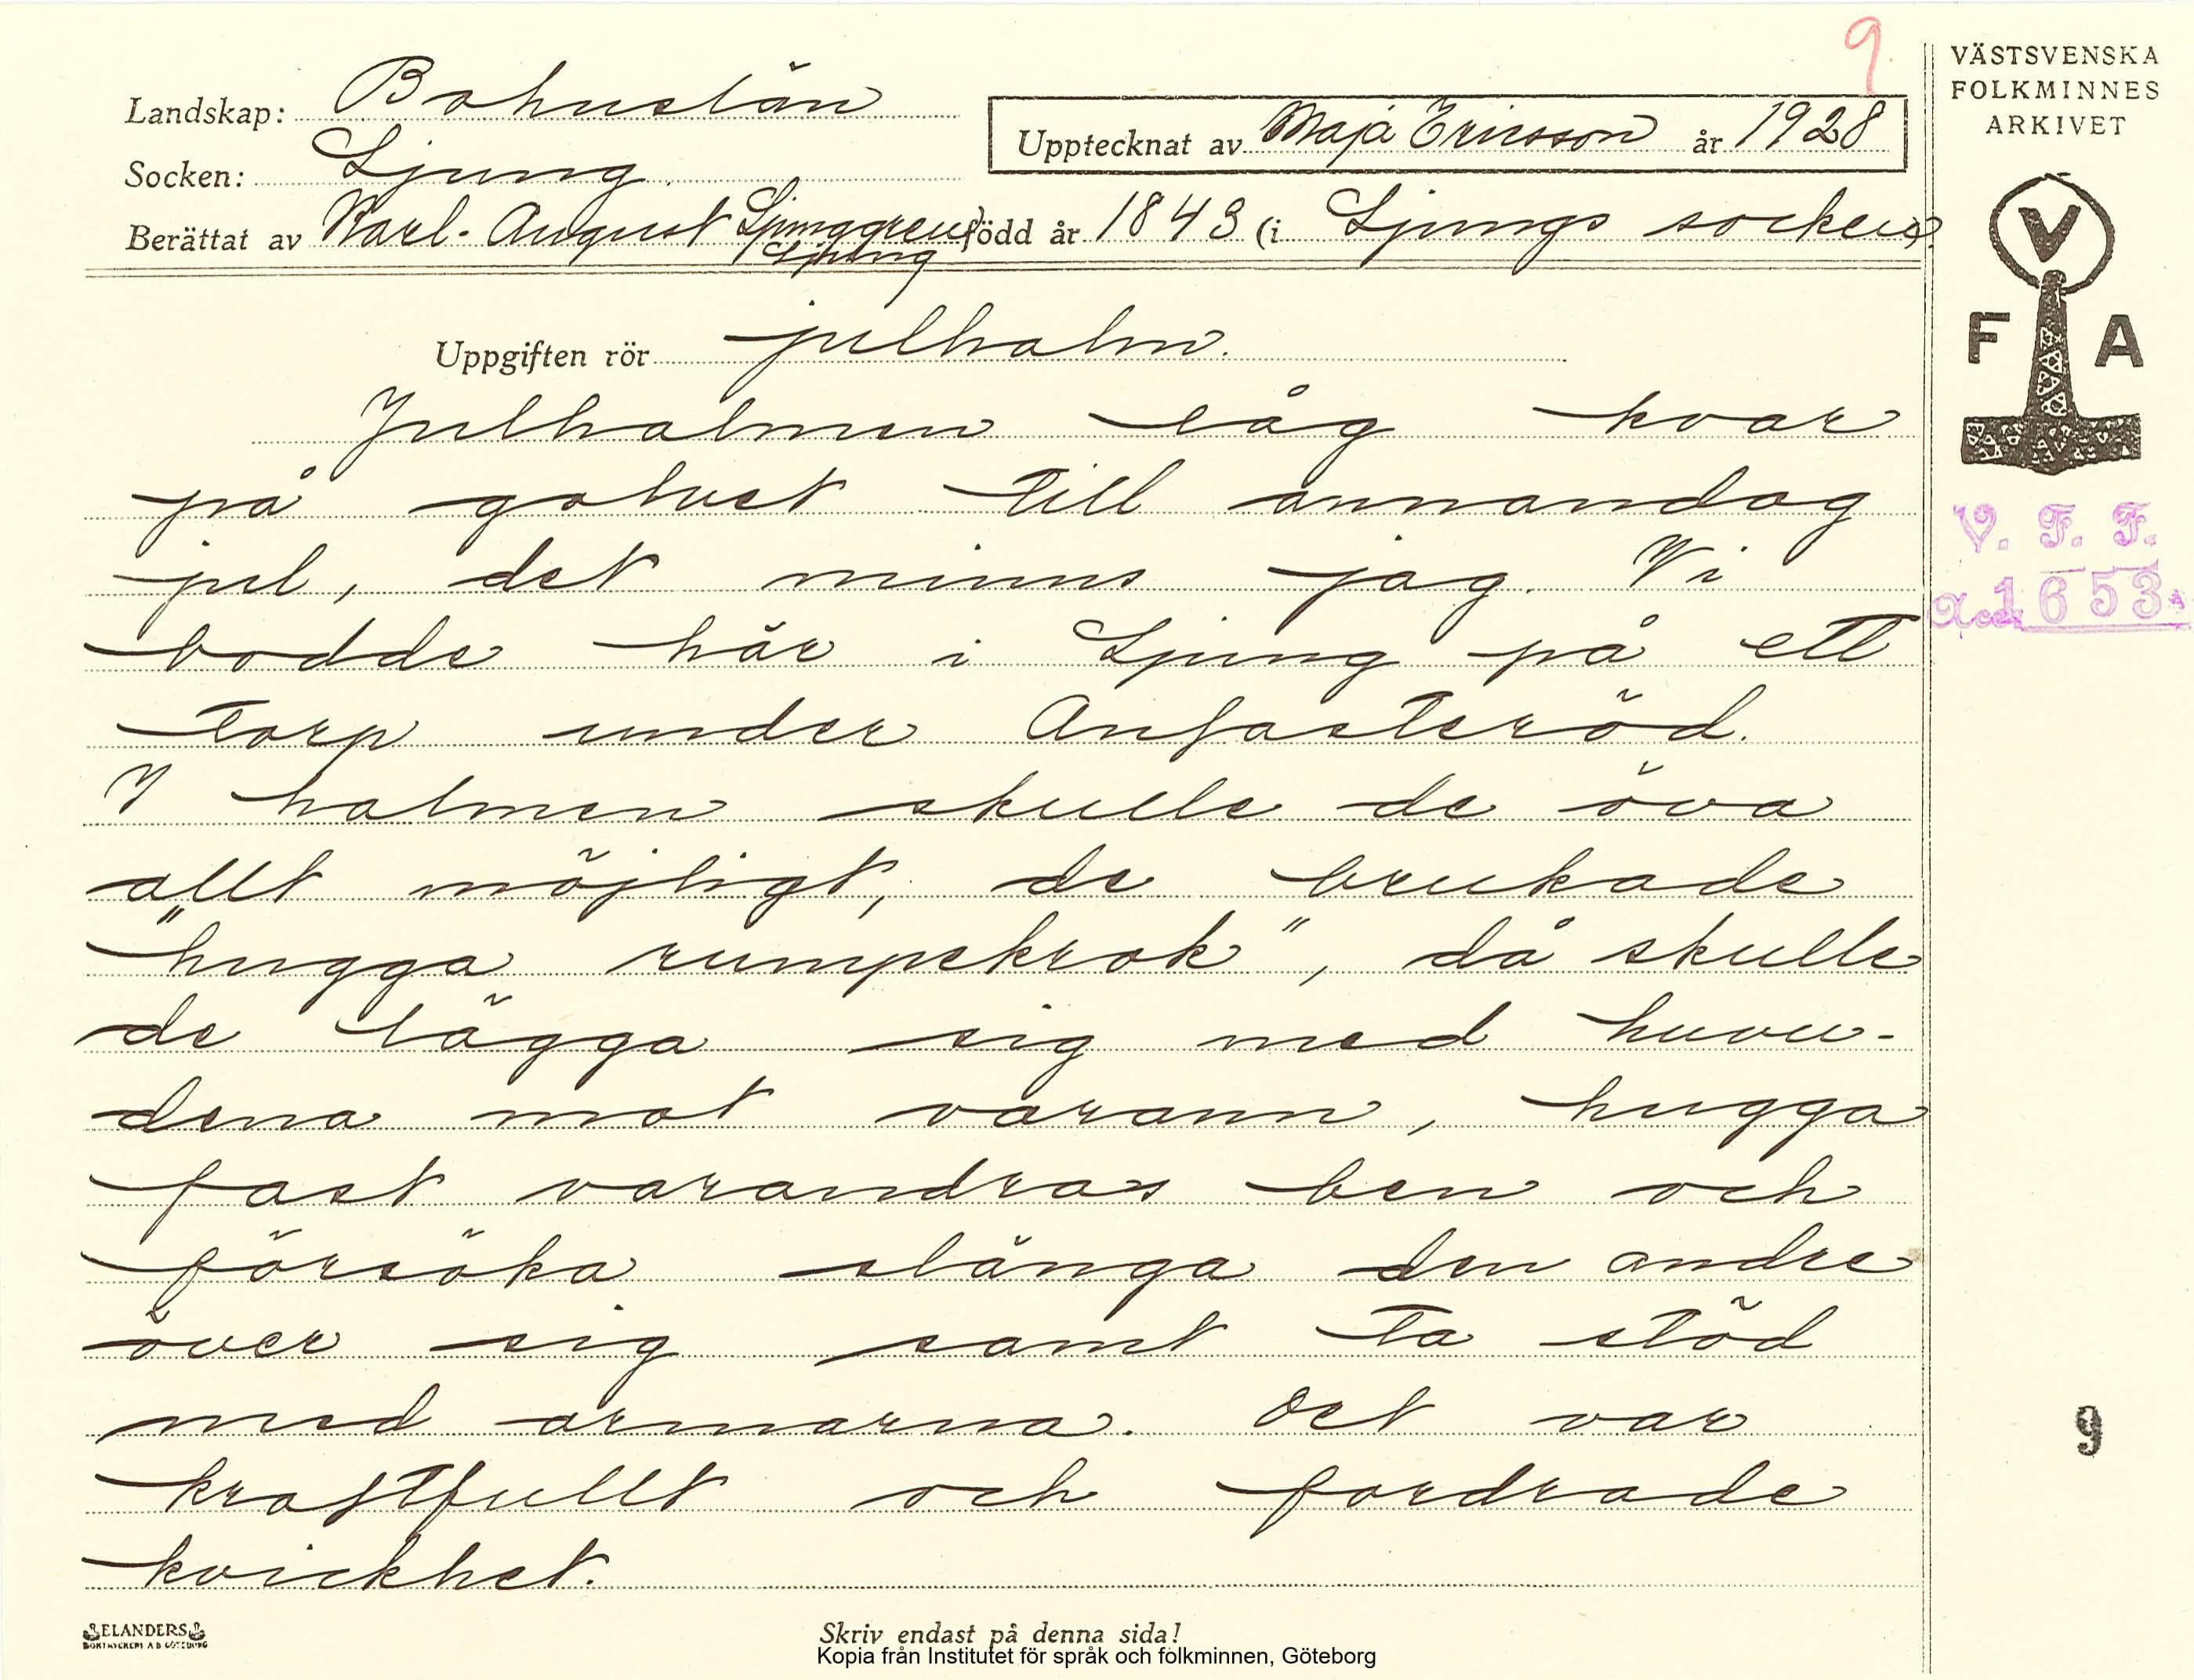 9
VÄSTSVENSKA
FOLKMINNES
ARKIVET
Landskap: Bohuslän
Upptecknat av Maja Ericsson år 1928
Socken: Ljung
Berättat av Karl-August Ljunggren född år 1843 (i Ljungs socken)
Ljung
V
F A
Uppgiften rör julhalm.
Julhalmen låg kvar
på golvet till annandag
jul, det minns jag. Vi
bodde här i Ljung på ett
torp under Anfasteröd.
I halmen skulle de öva
allt möjligt, de brukade
"hugga rumpekrok", då skulle
de lägga sig med huvu-
dena mot varann, hugga
fast varandras ben och
försöka slänga den andre
över sig samt ta stöd
med armarna. Det var
kraftfullt och fordrade
kvickhet.
V. F. F.
Acc. 1653
9
ELANDERS
BOKTRYCKERI A B GÖTEBORG
Skriv endast på denna sida!
Kopia från Institutet för språk och folkminnen, Göteborg